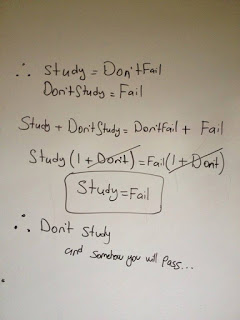 ∴ Study = Don't Fail
Don't Study = Fail
Study + Don't Study = Don't Fail + Fail
Study (1 + Don't) = Fail (1 + Don't)
Study = Fail
∴ Don't Study
and somehow you will pass...